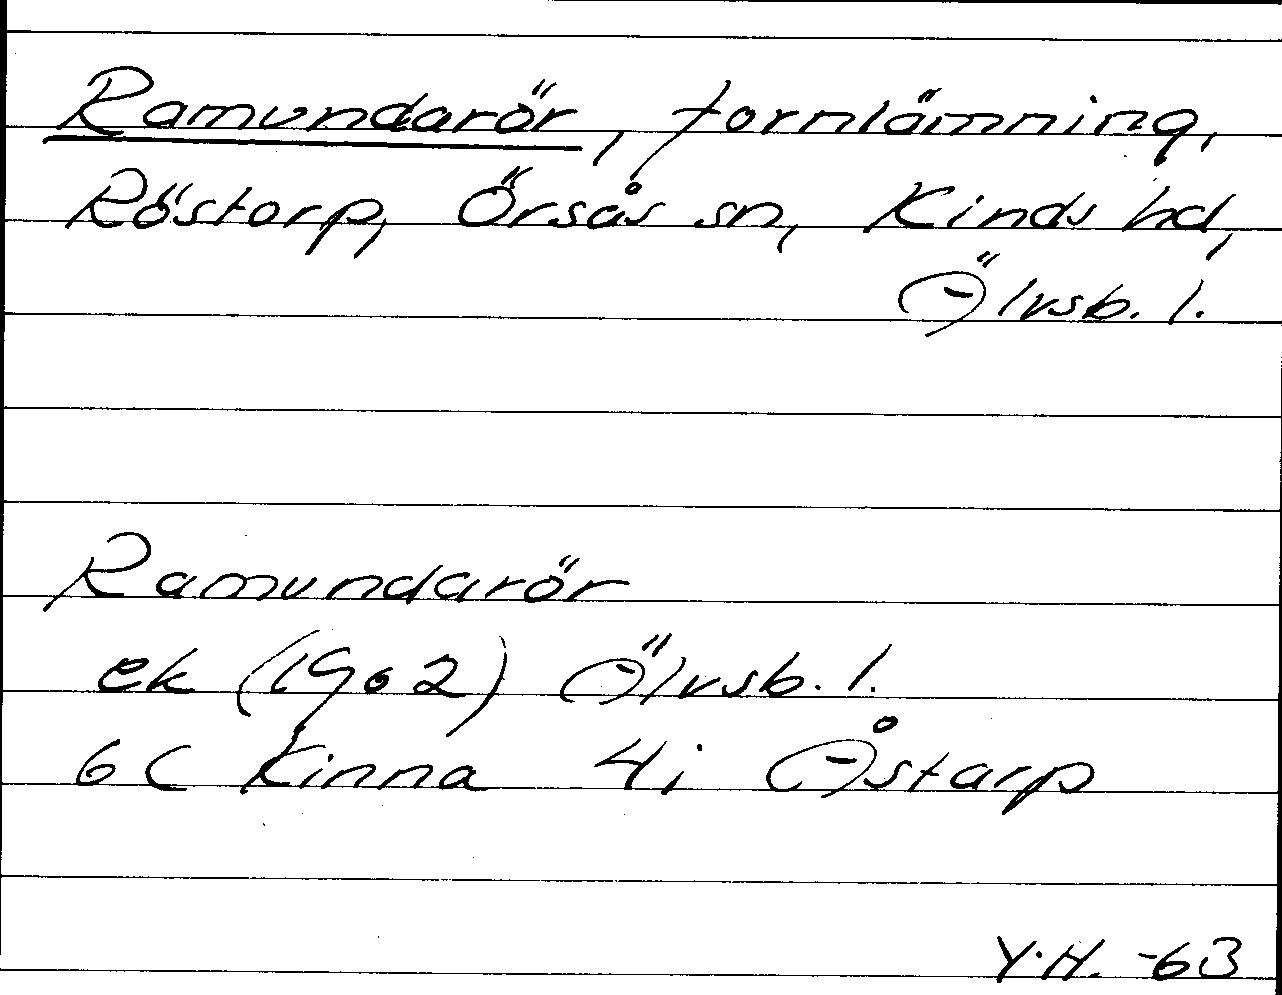 Ramundarör, fornlämning,
Röstorp, Örsås sn, Kinds hd,
Älvsb. l.
Ramundarör
ek (1962) Älvsb. l.
6C Kinna 4i Åstarp
Y.H. -63